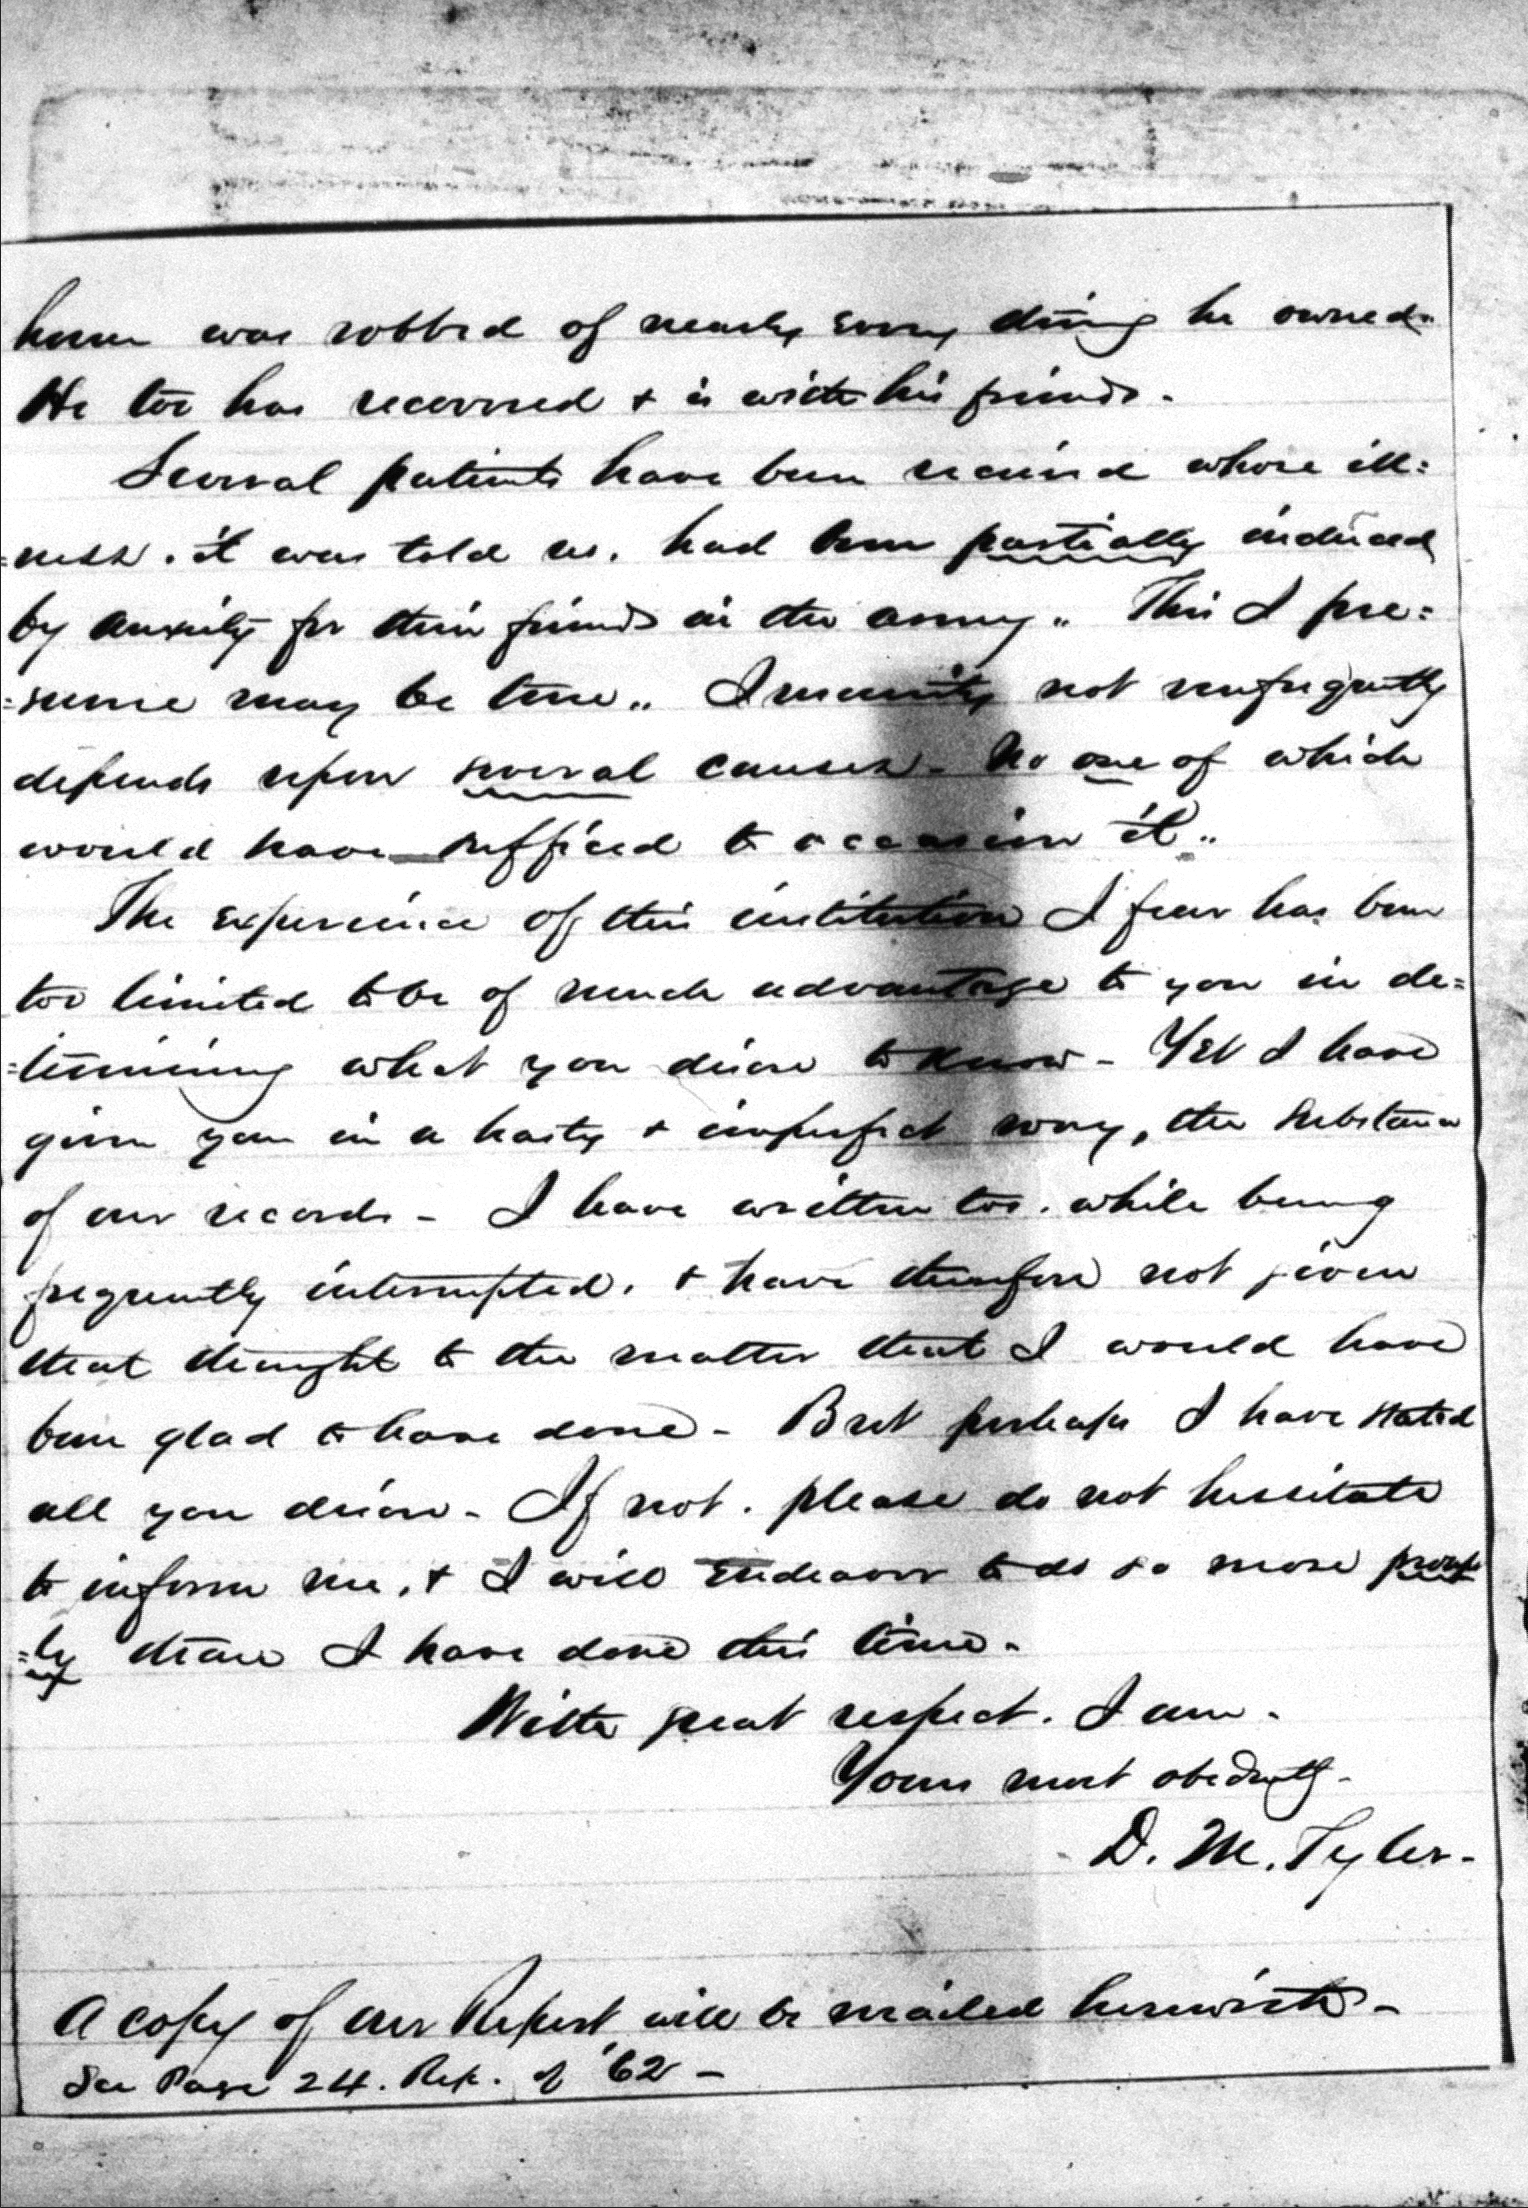 home was robbed of nearly every thing he owned.
He too has recovered & is with his friends.
Several patients have been received whose ill=
=ness. it was told us. had been partially induced
by anxiety for their friends in the army.. This I pre=
=sume may be true.. Insanity not unfrequently
depends upon several causes - No one of which
would have sufficed to occasion it..
The experience of this institution I fear has been
too limited to be of much advantage to you in de=
=termining what you desire to know - Yet I have
given you in a hasty & imperfect way, the substance
of our records - I have written too. while being
frequently interrupted. & have therefore not given
that thought to the matter that I would have
been glad to have done - But perhaps I have stated
all you desire - If not. please do not hessitate
to inform me, & I will endeavor to do so more prompt
=ly than I have done this time -
With great respect. I am -
Yours most obediently -
D. M. Tyler -
A copy of our Report will be mailed herewith -
See Page 24. Rep. of '62 -